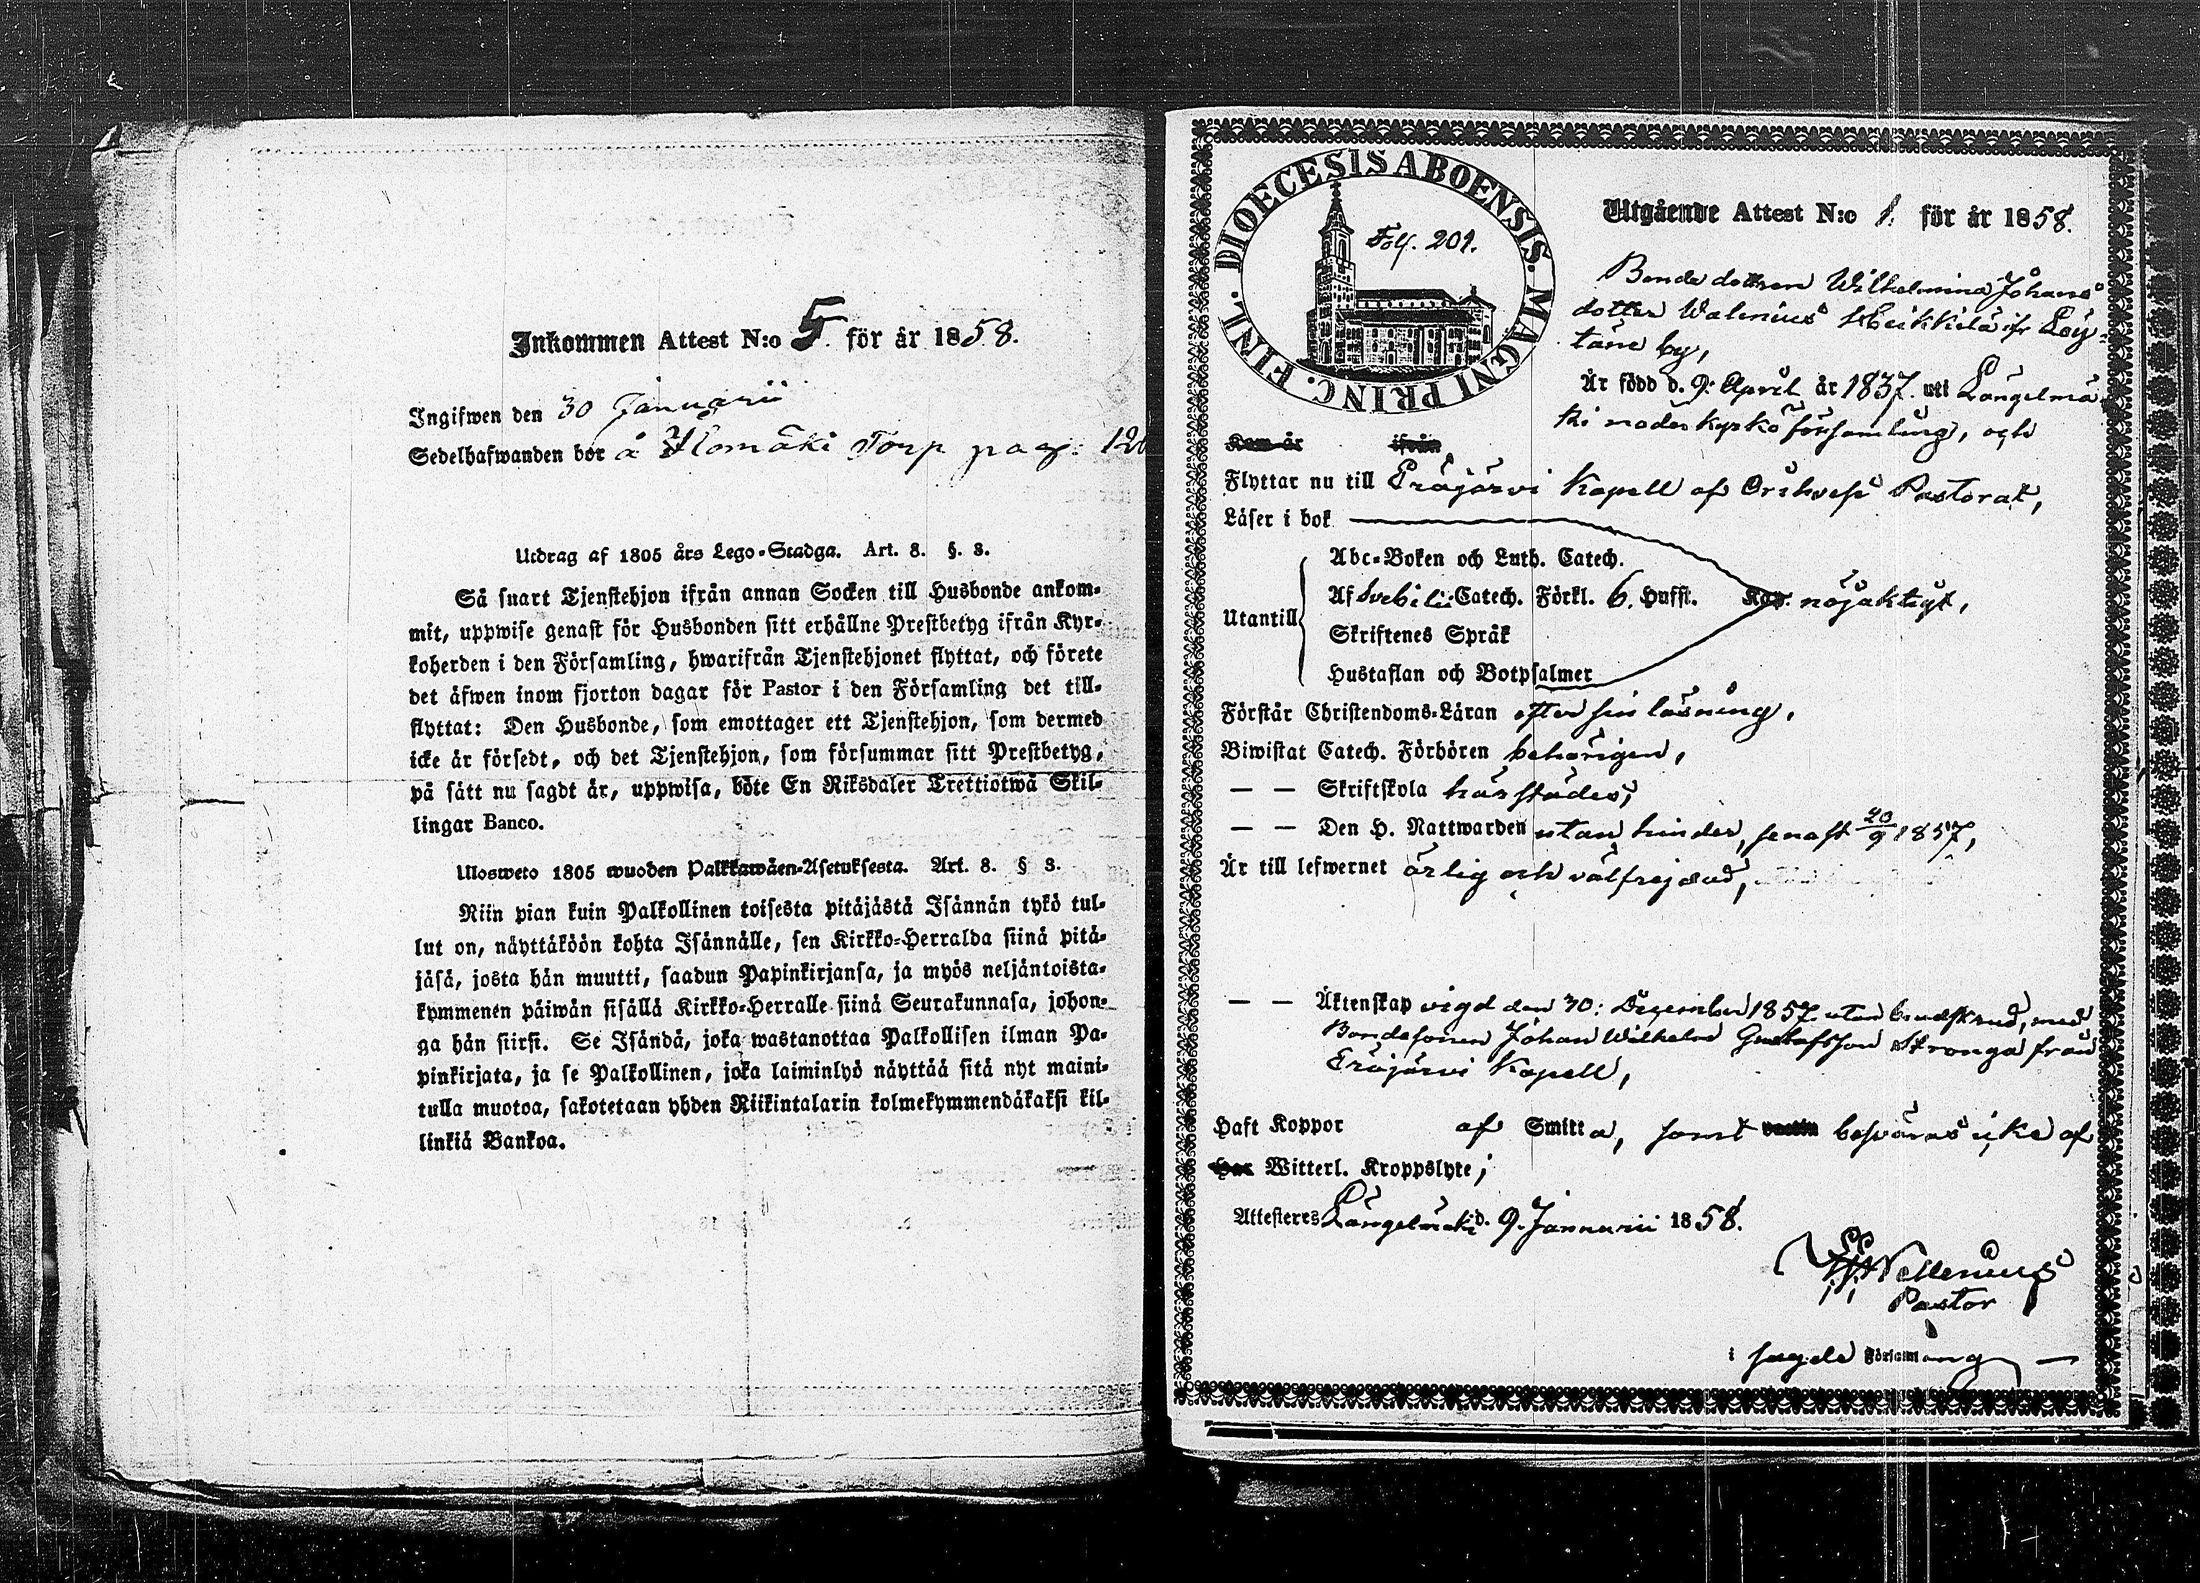 Inkommen Attest N:o 5. för år 1858.
Ingifwen den 30 Januarii
Sedelhafwanden bor å Ilomäki Torp pag: 120
Utdrag af 1805 års Lego-Stadga. Art. 8. §. 3.
Så snart Tjenstehjon ifrån annan Socken till Husbonde ankom-
mit, uppwise genast för Husbonden sitt erhållne Prestbetyg ifrån Kyr-
koherden i den Församling, hwarifrån Tjenstehjonet flyttat, och förete
det äfwen inom fjorton dagar för Pastor i den Församling det till-
flyttat: Den Husbonde, som emottager ett Tjenstehjon, som dermed
icke är försedt, och det Tjenstehjon, som försummar sitt Prestbetyg,
på sätt nu sagdt är, uppwisa, böte En Riksdaler Trettiotwå Skil-
lingar Banco.
Ulosweto 1805 wuoden Palkkawäen-Asetuksesta. Art. 8. § 3.
Niin pian kuin Palkollinen toisesta pitäjästä Isännän tykö tul-
lut on, näyttäköön kohta Isännälle, sen Kirkko-Herralda siinä pitä-
jäsä, josta hän muutti, saadun Papinkirjansa, ja myös neljäntoista-
kymmenen päiwän sisällä Kirkko-Herralle siinä Seurakunnasa, johon-
ga hän siirsi. Se Isändä, joka wastanottaa Palkollisen ilman Pa-
pinkirjata, ja se Palkollinen, joka laiminlyö näyttää sitä nyt maini-
tulla muotoa, sakotetaan yhden Riikintalarin kolmekymmendäkaksi kil-
linkiä Bankoa.
DIOECESIS ABOENSIS. MAGNI PRINC. FINL.
Fol. 201.
Utgående Attest N:o 1. för år 1858.
Bonde dottren Wilhelmina Johans
dotter Walenius Heikkilä ifr Löy-
täne by,
Är född d. 9: April år 1837. uti Längelmä-
ki moderkyrko församling, och
Kom år ifrån
Flyttar nu till Eräjärvi Kapell af Orihvesi Pastorat,
Läser i bok
Abc-Boken och Luth. Catech.
Utantill Af Svebilii Catech. Förkl. 6. Hufst. nöjaktigt,
Skriftenes Språk
Hustaflan och Botpsalmer
Förstår Christendoms-Läran efter sin läsning,
Biwistat Catech. Förhören behörigen,
— — Skriftskola härstädes,
— — Den H. Nattwarden utan hinder, senast 20/9 1857,
Är till lefwernet ärlig och välfrejdad,
— — Äktenskap vigd den 30: December 1857 utan brudskrud, med
Bondesonen Johan Wilhelm Gustafsson Stronga från
Eräjärvi Kapell,
Haft Koppor af Smitta, samt besväras icke af
Har Witterl. Kroppslyte;
Attesteres Längelmäki d. 9. Januarii 1858.
Wellenius
Pastor
i sagde Församling